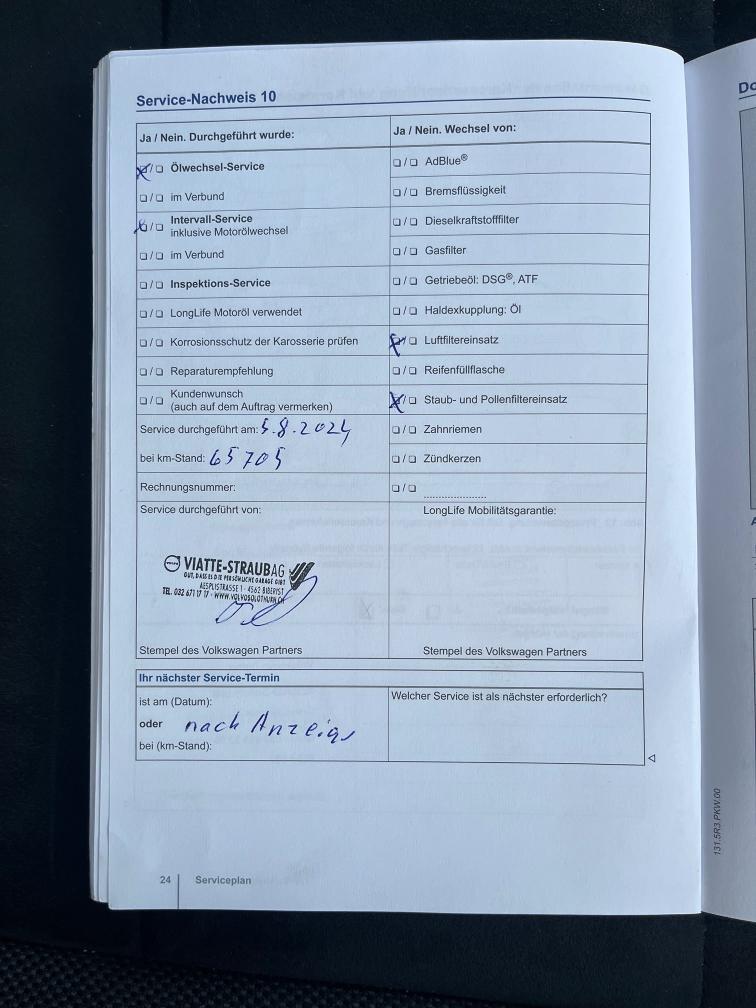 Service-Nachweis 10
Ja / Nein. Durchgeführt wurde:
❑ / ❑ Ölwechsel-Service
❑ / ❑ im Verbund
❑ / ❑ Intervall-Service
inklusive Motorölwechsel
❑ / ❑ im Verbund
❑ / ❑ Inspektions-Service
❑ / ❑ LongLife Motoröl verwendet
❑ / ❑ Korrosionsschutz der Karosserie prüfen
❑ / ❑ Reparaturempfehlung
❑ / ❑ Kundenwunsch
(auch auf dem Auftrag vermerken)
Service durchgeführt am: 5.8.2024
bei km-Stand: 65705
Rechnungsnummer:
Service durchgeführt von:
VIATTE-STRAUB AG
GUT, DASS ES DIE PERSÖNLICHE GARAGE GIBT
AESPLISTRASSE 1 · 4562 BIBERIST
TEL. 032 671 17 17 · WWW.VOLVOSOLOTHURN.CH
Stempel des Volkswagen Partners
Ja / Nein. Wechsel von:
❑ / ❑ AdBlue®
❑ / ❑ Bremsflüssigkeit
❑ / ❑ Dieselkraftstofffilter
❑ / ❑ Gasfilter
❑ / ❑ Getriebeöl: DSG®, ATF
❑ / ❑ Haldexkupplung: Öl
❑ / ❑ Luftfiltereinsatz
❑ / ❑ Reifenfüllflasche
❑ / ❑ Staub- und Pollenfiltereinsatz
❑ / ❑ Zahnriemen
❑ / ❑ Zündkerzen
❑ / ❑ ....................
LongLife Mobilitätsgarantie:
Stempel des Volkswagen Partners
Ihr nächster Service-Termin
ist am (Datum):
oder nach Anzeige
bei (km-Stand):
Welcher Service ist als nächster erforderlich?
24 Serviceplan
131.5R3.PKW.00
Do